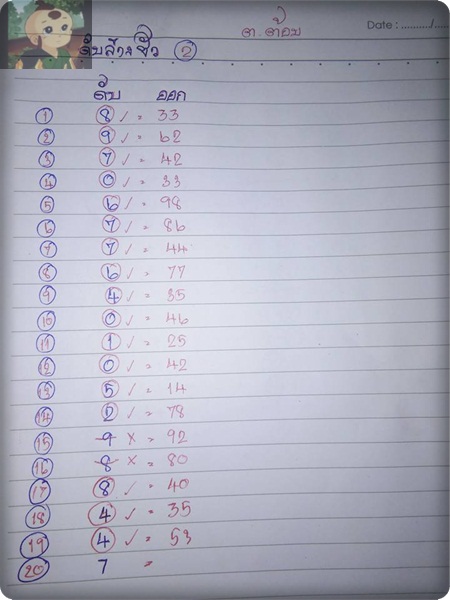 อ.ต้อม
Date : ........../....
ดับล่าง งัว ②
ดับ ออก
① 8 ✓ = 33
② 9 ✓ = 62
③ 7 ✓ = 42
④ 0 ✓ = 33
⑤ 6 ✓ = 98
⑥ 7 ✓ = 86
⑦ 7 ✓ = 44
⑧ 6 ✓ = 77
⑨ 4 ✓ = 35
⑩ 0 ✓ = 46
⑪ 1 ✓ = 25
⑫ 0 ✓ = 42
⑬ 5 ✓ = 14
⑭ 2 ✓ = 78
⑮ 9 × = 92
⑯ 8 × = 80
⑰ 8 ✓ = 40
⑱ 4 ✓ = 35
⑲ 4 ✓ = 53
⑳ 7 =